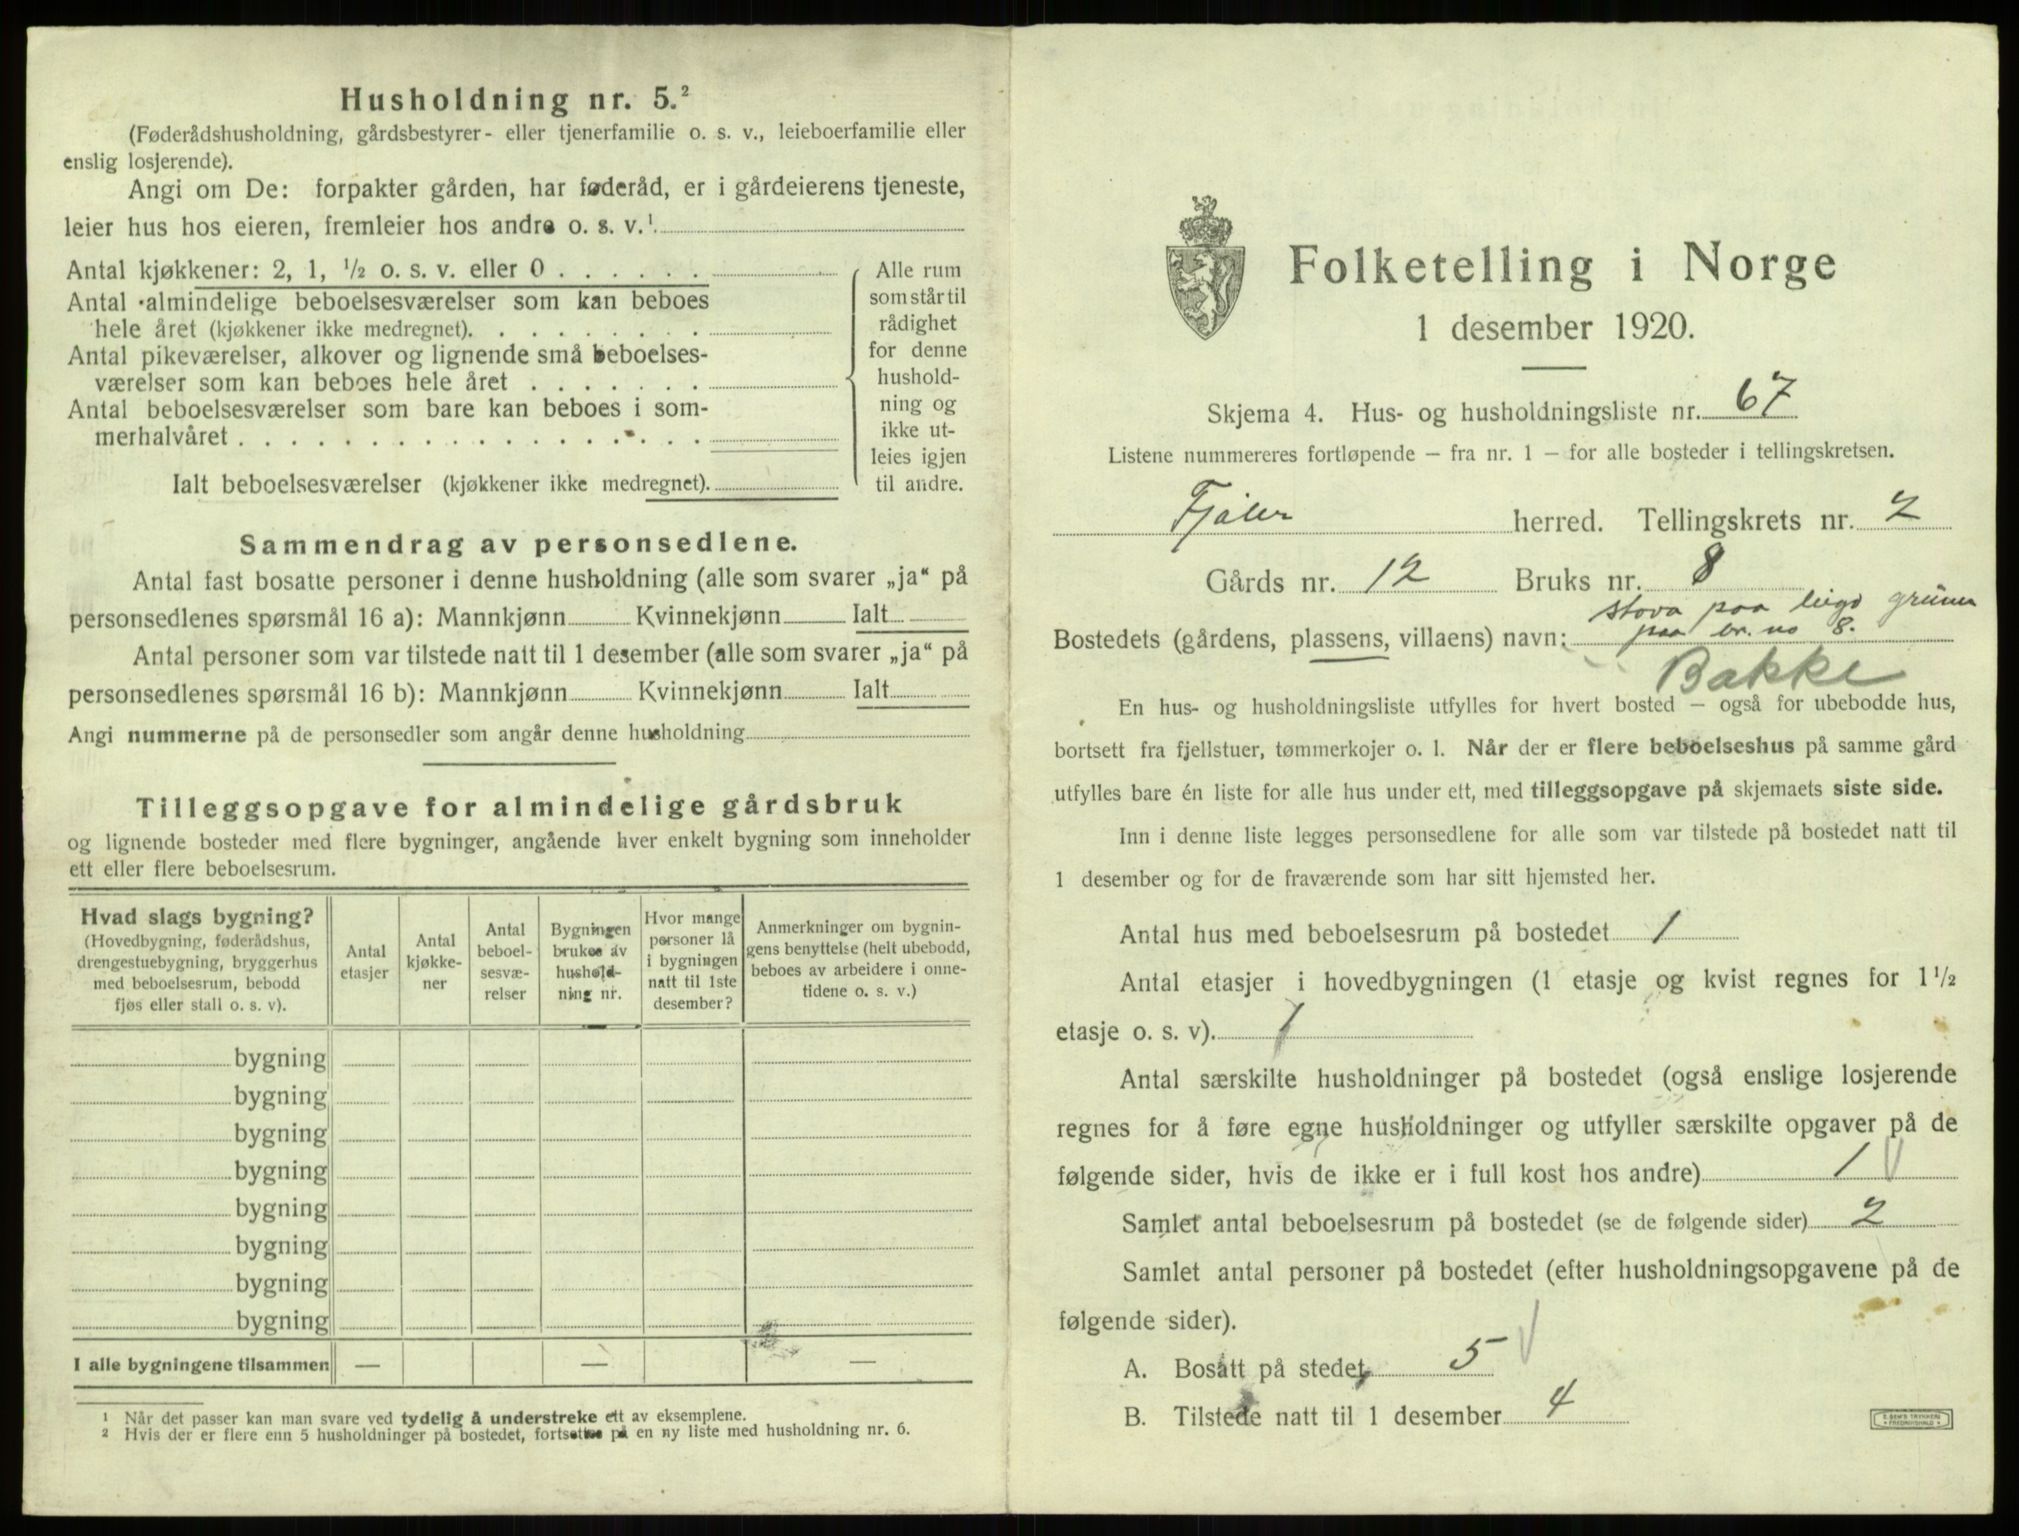 Husholdning nr. 5.²
(Føderådshusholdning, gårdsbestyrer- eller tjenerfamilie o. s. v., leieboerfamilie eller
enslig losjerende).
Angi om De: forpakter gården, har føderåd, er i gårdeierens tjeneste,
leier hus hos eieren, fremleier hos andre o. s. v.¹
Antal kjøkkener: 2, 1, ½ o. s. v. eller 0 . . . . . .
Antal almindelige beboelsesværelser som kan beboes
hele året (kjøkkener ikke medregnet). . . . . . . . .
Antal pikeværelser, alkover og lignende små beboelses-
værelser som kan beboes hele året . . . . . . .
Antal beboelsesværelser som bare kan beboes i som-
merhalvåret . . . . . . . . . . . . . . . . . .
Ialt beboelsesværelser (kjøkkener ikke medregnet).
Alle rum
som står til
rådighet
for denne
hushold-
ning og
ikke ut-
leies igjen
til andre.
Sammendrag av personsedlene.
Antal fast bosatte personer i denne husholdning (alle som svarer „ja“ på
personsedlenes spørsmål 16 a): Mannkjønn Kvinnekjønn Ialt
Antal personer som var tilstede natt til 1 desember (alle som svarer „ja“ på
personsedlenes spørsmål 16 b): Mannkjønn Kvinnekjønn Ialt
Angi nummerne på de personsedler som angår denne husholdning
Tilleggsopgave for almindelige gårdsbruk
og lignende bosteder med flere bygninger, angående hver enkelt bygning som inneholder
ett eller flere beboelsesrum.
Hvad slags bygning?
(Hovedbygning, føderådshus,
drengestuebygning, bryggerhus
med beboelsesrum, bebodd
fjøs eller stall o. s. v).
Antal
etasjer
Antal
kjøkke-
ner
Antal
beboel-
sesvæ-
relser
Bygningen
brukes av
hushold-
ning nr.
Hvor mange
personer lå
i bygningen
natt til 1ste
desember?
Anmerkninger om bygnin-
gens benyttelse (helt ubebodd,
beboes av arbeidere i onne-
tidene o. s. v.)
bygning
bygning
bygning
bygning
bygning
bygning
bygning
bygning
I alle bygningene tilsammen — — —
¹ Når det passer kan man svare ved tydelig å understreke ett av eksemplene.
² Hvis der er flere enn 5 husholdninger på bostedet, fortsettes på en ny liste med husholdning nr. 6.
Folketelling i Norge
1 desember 1920.
Skjema 4. Hus- og husholdningsliste nr. 67
Listene nummereres fortløpende — fra nr. 1 — for alle bosteder i tellingskretsen.
Fjaler herred. Tellingskrets nr. 2
Gårds nr. 12 Bruks nr. 8
stova paa leigd grunn
Bostedets (gårdens, plassens, villaens) navn: paa br. no 8.
Bakke
En hus- og husholdningsliste utfylles for hvert bosted — også for ubebodde hus,
bortsett fra fjellstuer, tømmerkojer o. l. Når der er flere beboelseshus på samme gård
utfylles bare én liste for alle hus under ett, med tilleggsopgave på skjemaets siste side.
Inn i denne liste legges personsedlene for alle som var tilstede på bostedet natt til
1 desember og for de fraværende som har sitt hjemsted her.
Antal hus med beboelsesrum på bostedet 1
Antal etasjer i hovedbygningen (1 etasje og kvist regnes for 1½
etasje o. s. v). 1
Antal særskilte husholdninger på bostedet (også enslige losjerende
regnes for å føre egne husholdninger og utfyller særskilte opgaver på de
følgende sider, hvis de ikke er i full kost hos andre) 1
Samlet antal beboelsesrum på bostedet (se de følgende sider) 2
Samlet antal personer på bostedet (efter husholdningsopgavene på de
følgende sider).
A. Bosatt på stedet 5
B. Tilstede natt til 1 desember 4